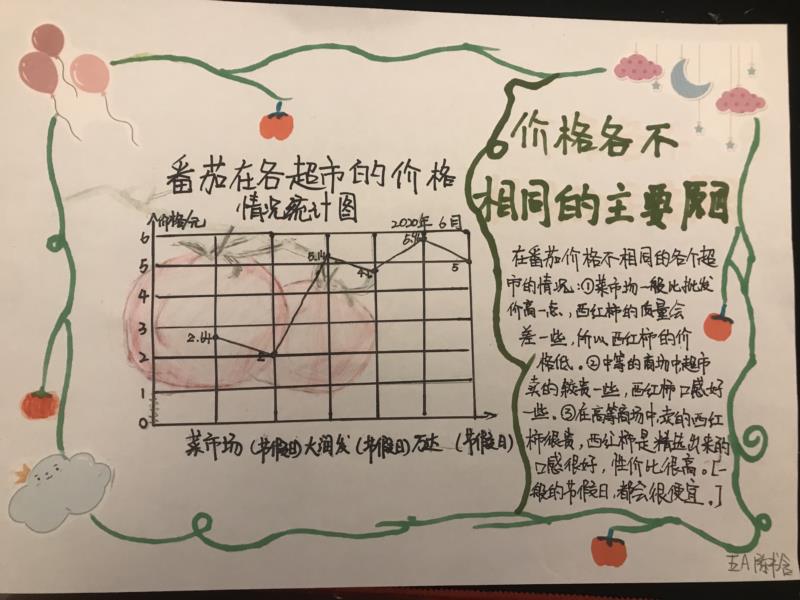 番茄在各超市的价格
情况统计图
个价格/元
2020年6月
6
5
4
3
2
1
0
2.64
2
5
菜市场 (节假日) 大润发 (节假日) 万达 (节假日)
价格各不
相同的主要原因
在番茄价格不相同的各个超
市的情况:①菜市场一般比批发
价高一点、西红柿的质量会
差一些,所以西红柿的价
格低。②中等的商场中超市
卖的较贵一些,西红柿口感好
一些。③在高等商场中,卖的西红
柿很贵,西红柿是精选出来的
口感很好,性价比很高。[一
般的节假日,都会很便宜。]
五A